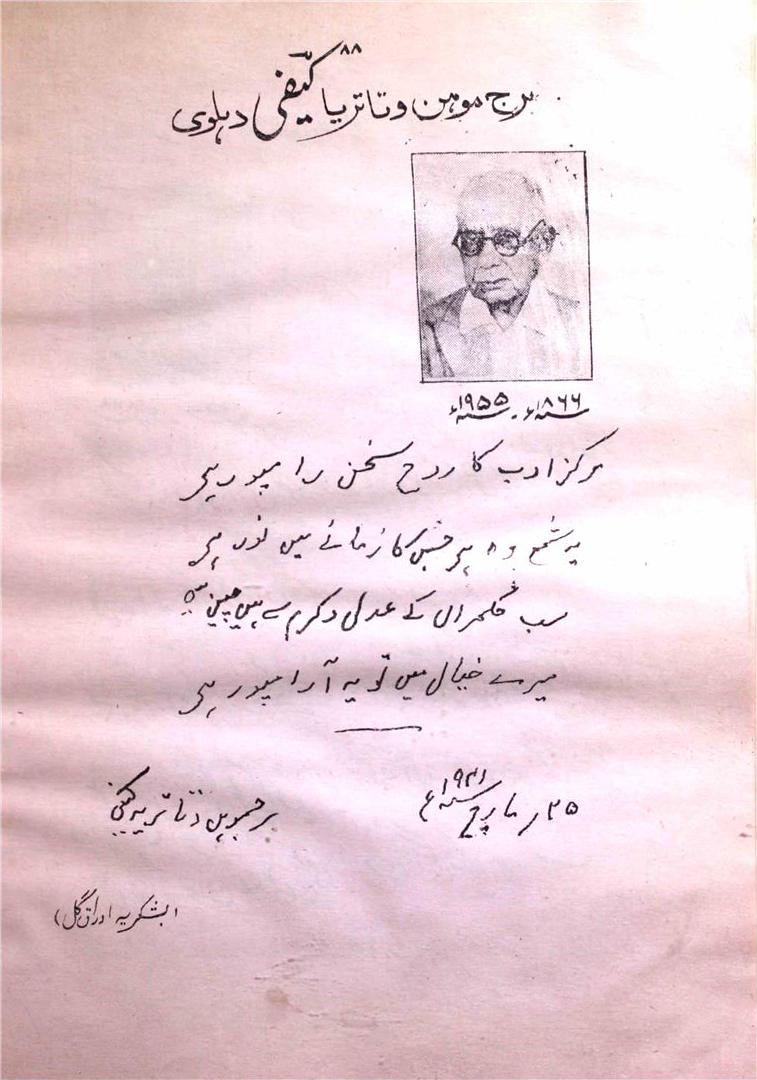 ۸۸
برج موہن وتاتریا کیفی دہلوی
۱۸۶۶ء - ۱۹۵۵ء
مرکز ادب کا روح سخن رامپور ہے
یہ شمع وہ ہے جس کا زمانے میں نور ہے
سب حکمراں کے عدل و کرم سے ہیں
میرے خیال میں تو یہ آرامپور ہے
۲۵ مارچ ۱۹۴۱ء
برجموہن دتاتریہ کیفی
(بشکریہ اوراق گل)